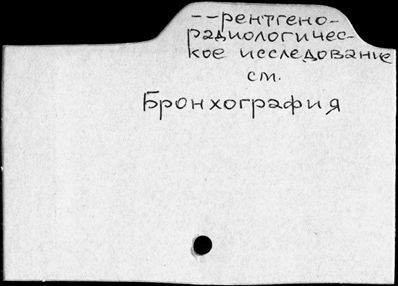 --рентгено-
радиологичес-
кое исследование
см.
Бронхография